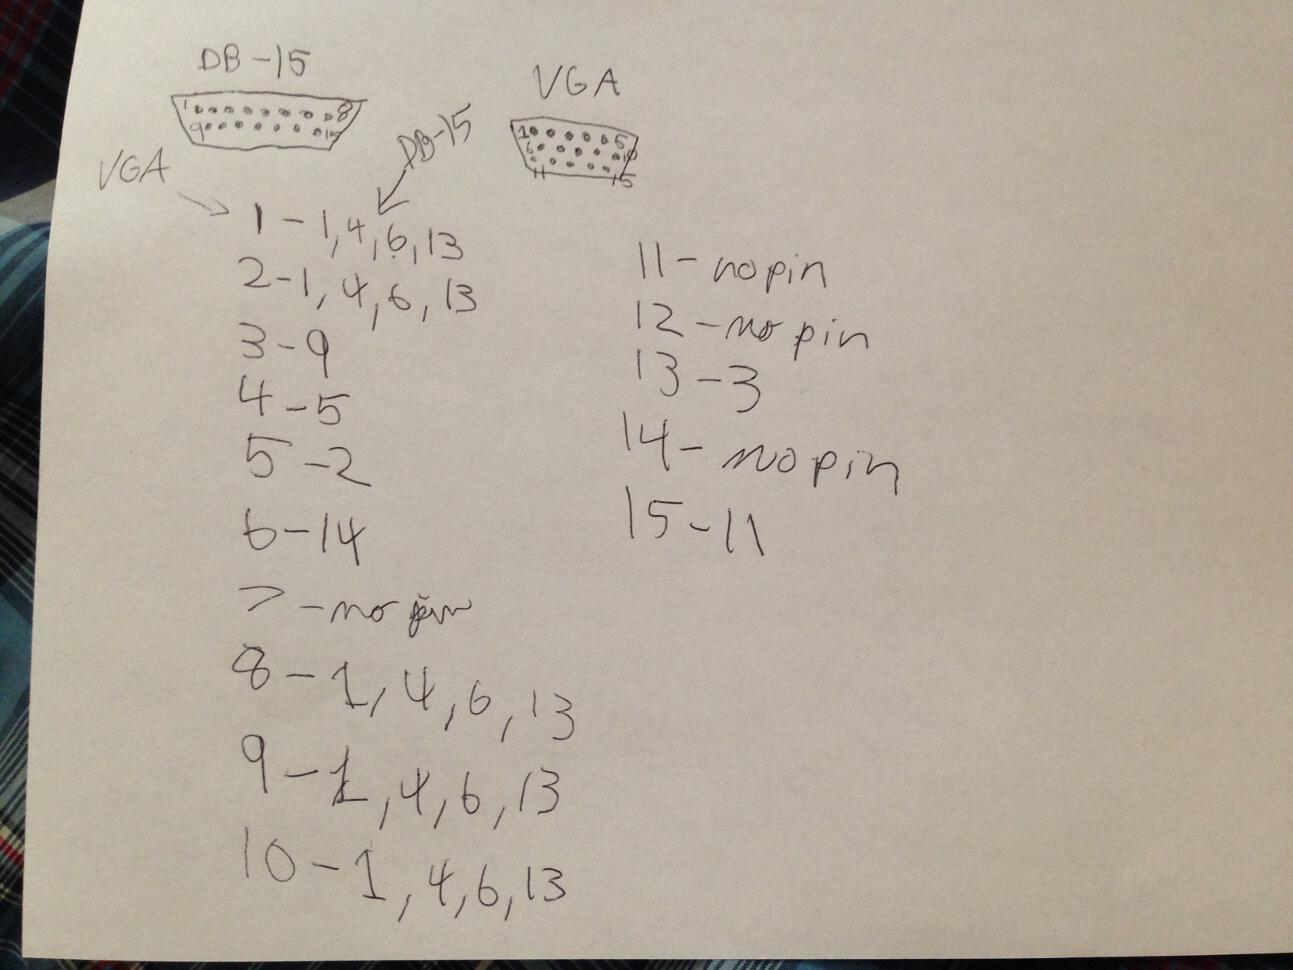 DB-15
VGA
1 8
9 15
1 5
6 10
11 15
VGA
DB-15
1-1,4,6,13
2-1,4,6,13
3-9
4-5
5-2
6-14
7-no pin
8-1,4,6,13
9-1,4,6,13
10-1,4,6,13
11-no pin
12-no pin
13-3
14-no pin
15-11